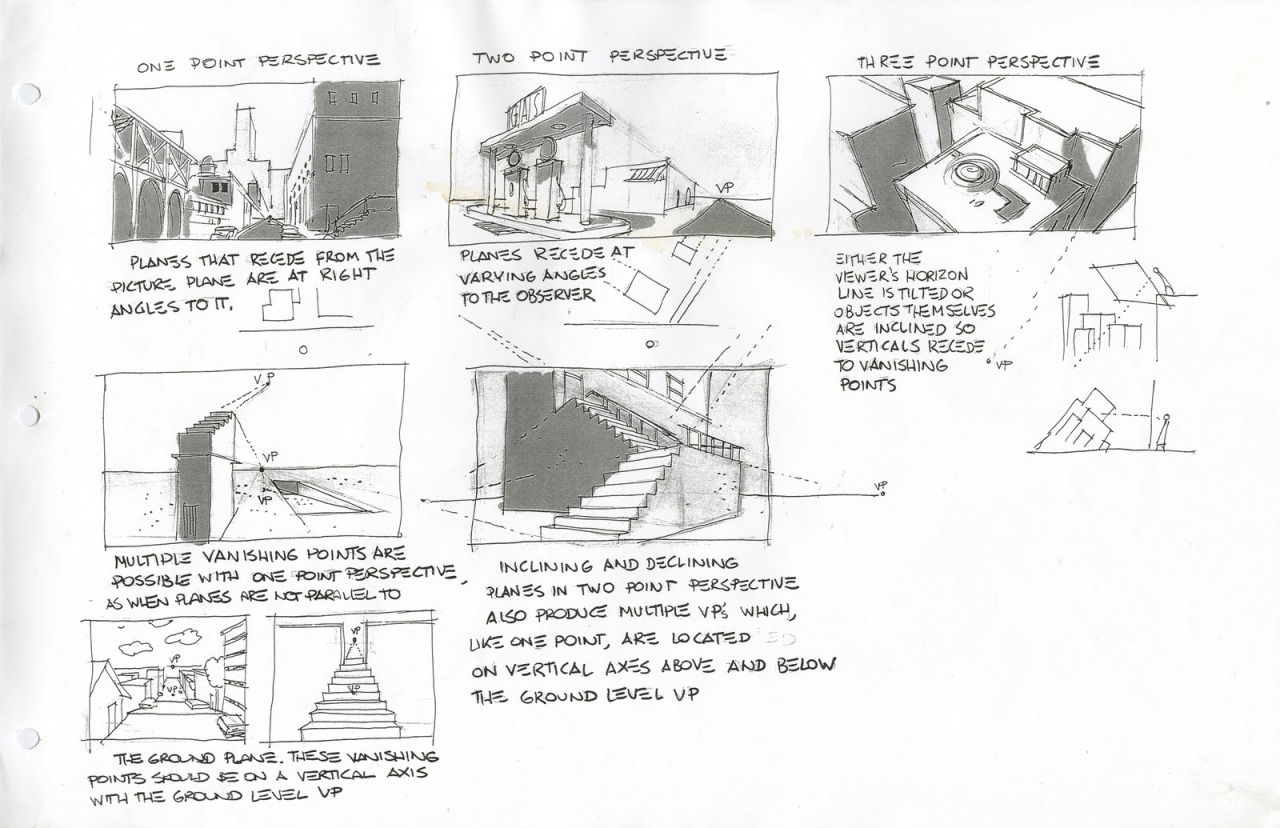 ONE POINT PERSPECTIVE
PLANES THAT RECEDE FROM THE
PICTURE PLANE ARE AT RIGHT
ANGLES TO IT.
V.P
VP
VP
MULTIPLE VANISHING POINTS ARE
POSSIBLE WITH ONE POINT PERSPECTIVE,
AS WHEN PLANES ARE NOT PARALLEL TO
VP
VP
VP
VP
THE GROUND PLANE. THESE VANISHING
POINTS SHOULD BE ON A VERTICAL AXIS
WITH THE GROUND LEVEL VP
TWO POINT PERSPECTIVE
GAS
VP
PLANES RECEDE AT
VARYING ANGLES
TO THE OBSERVER
VP
INCLINING AND DECLINING
PLANES IN TWO POINT PERSPECTIVE
ALSO PRODUCE MULTIPLE VP'S WHICH,
LIKE ONE POINT, ARE LOCATED
ON VERTICAL AXES ABOVE AND BELOW
THE GROUND LEVEL VP
THREE POINT PERSPECTIVE
EITHER THE
VIEWER'S HORIZON
LINE IS TILTED OR
OBJECTS THEMSELVES
ARE INCLINED SO
VERTICALS RECEDE
TO VANISHING
POINTS
VP